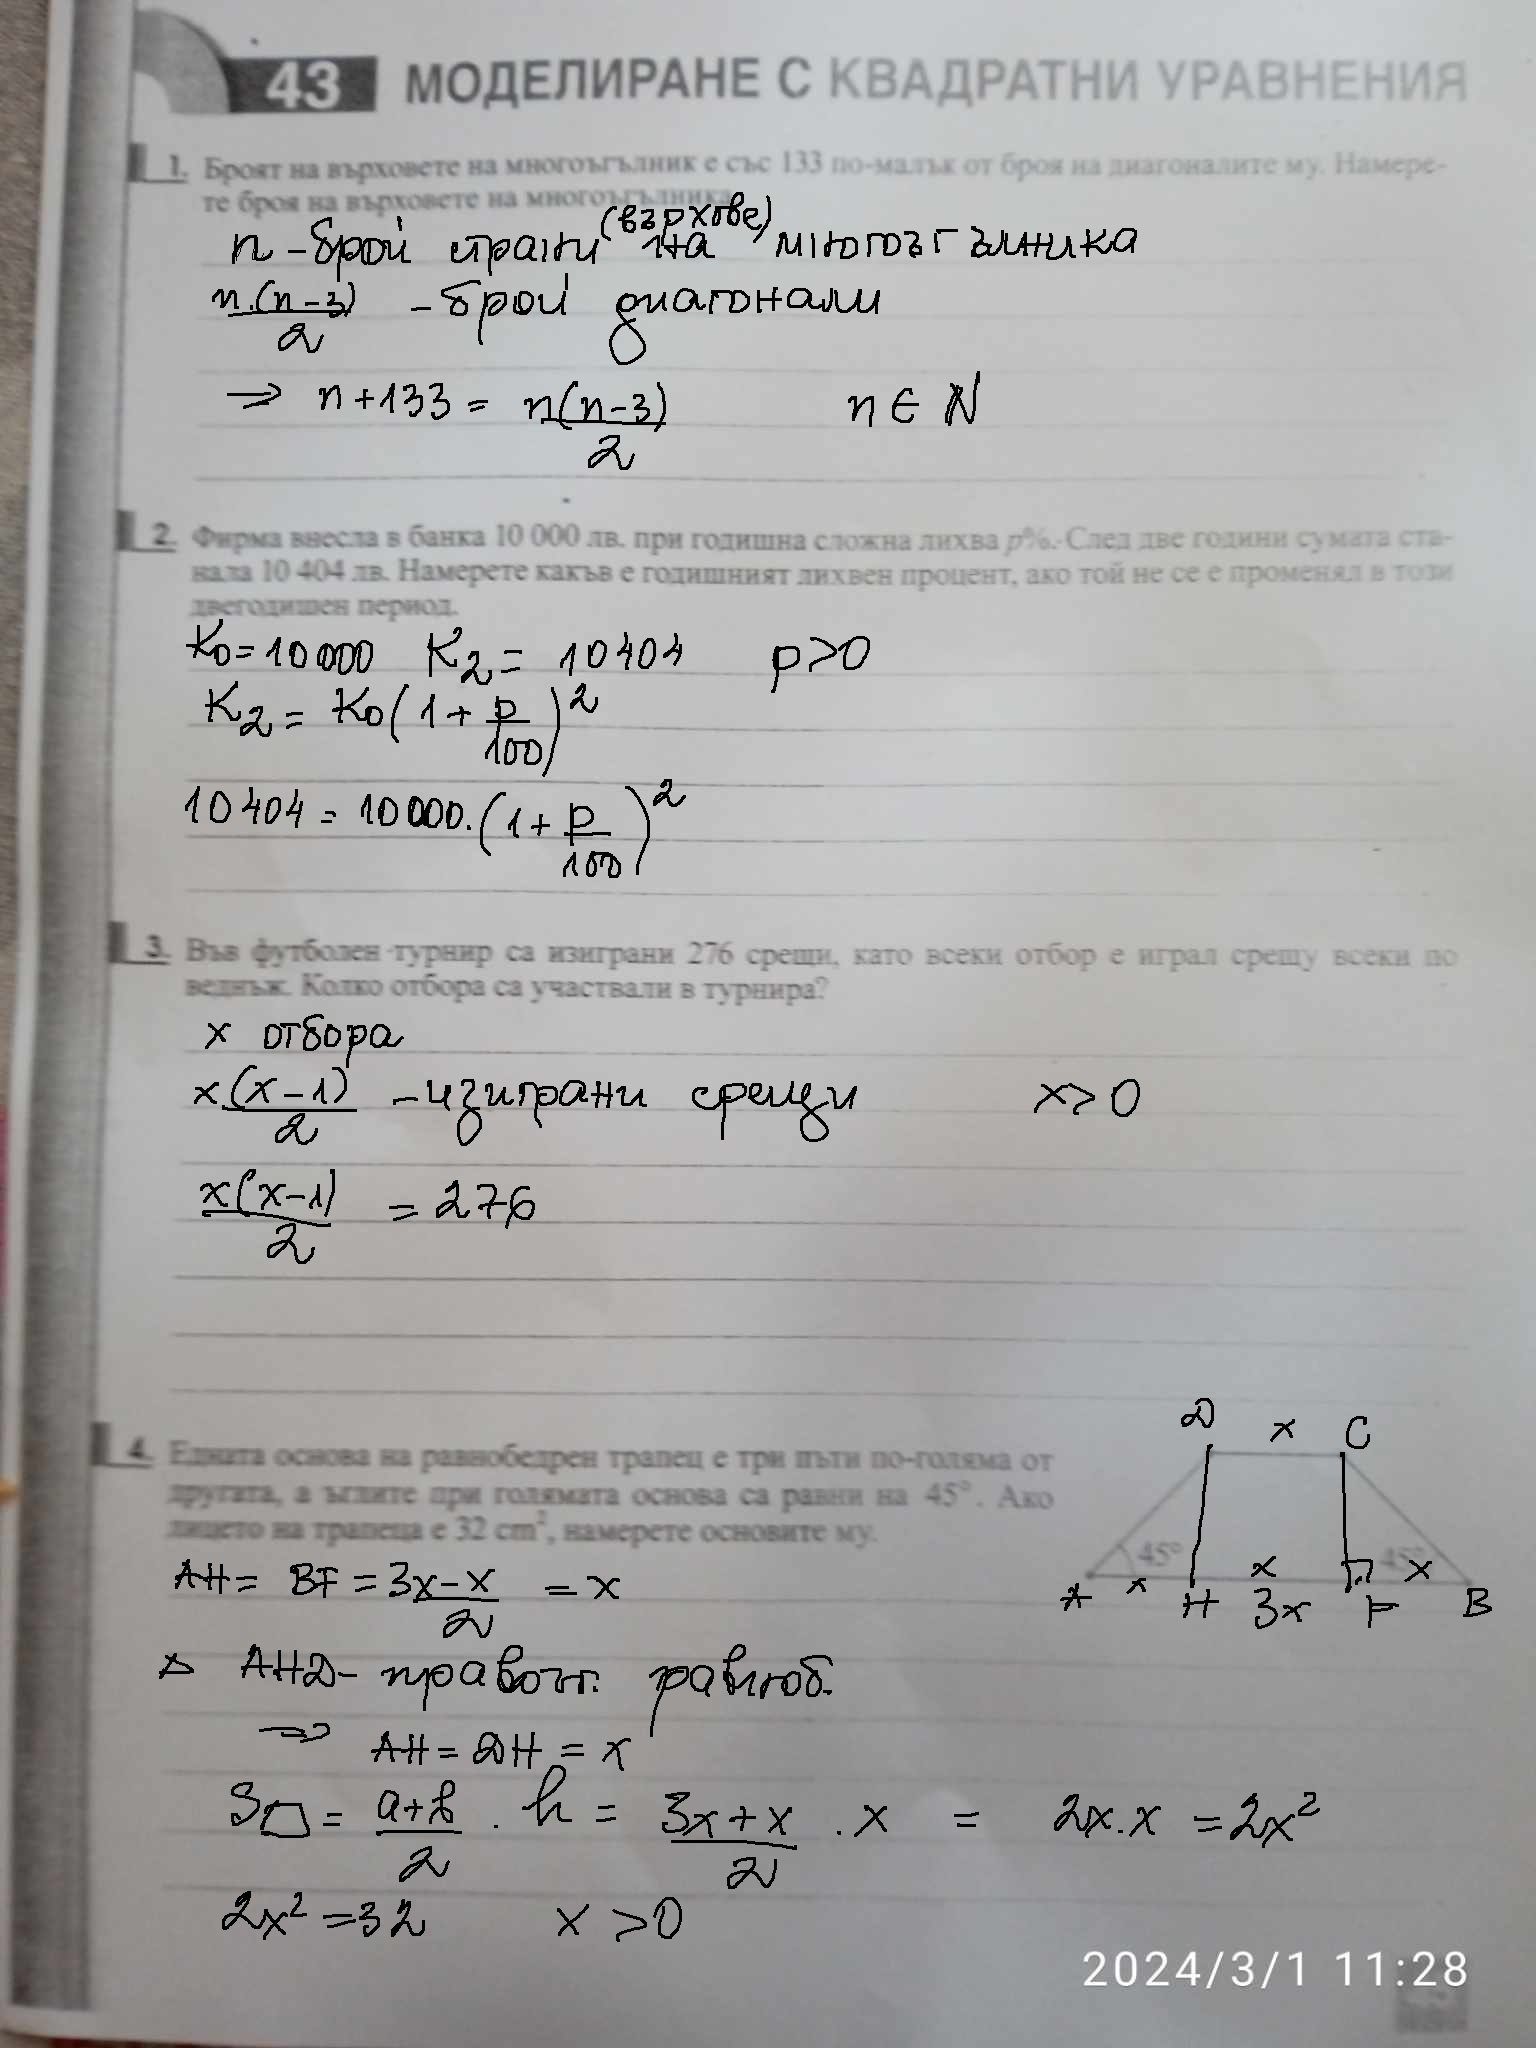 43 МОДЕЛИРАНЕ С КВАДРАТНИ УРАВНЕНИЯ
1. Броят на върховете на многоъгълник е със 133 по-малък от броя на диагоналите му. Намере-
те броя на върховете на многоъгълника.
(върхове)
n - брой страни на многоъгълника
n.(n-3)/2 - брой диагонали
⇒ n+133 = n(n-3)/2 n ∈ N
2. Фирма внесла в банка 10 000 лв. при годишна сложна лихва p%. След две години сумата ста-
нала 10 404 лв. Намерете какъв е годишният лихвен процент, ако той не се е променял в този
двегодишен период.
K0 = 10000 K2 = 10404 p>0
K2 = K0(1+p/100)²
10404 = 10000.(1+p/100)²
3. Във футболен турнир са изиграни 276 срещи, като всеки отбор е играл срещу всеки по
веднъж. Колко отбора са участвали в турнира?
x отбора
x(x-1)/2 - изиграни срещи x>0
x(x-1)/2 = 276
4. Едната основа на равнобедрен трапец е три пъти по-голяма от
другата, а ъглите при голямата основа са равни на 45°. Ако
лицето на трапеца е 32 cm², намерете основите му.
D x C
45° x 45° x
A x H 3x F B
AH = BF = 3x-x/2 = x
△ AHD - правоъг. равноб.
⇒ AH = DH = x
S = a+b/2 . h = 3x+x/2 . x = 2x.x = 2x²
2x² = 32 x > 0
2024/3/1 11:28